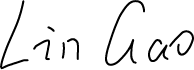 Lin Gao